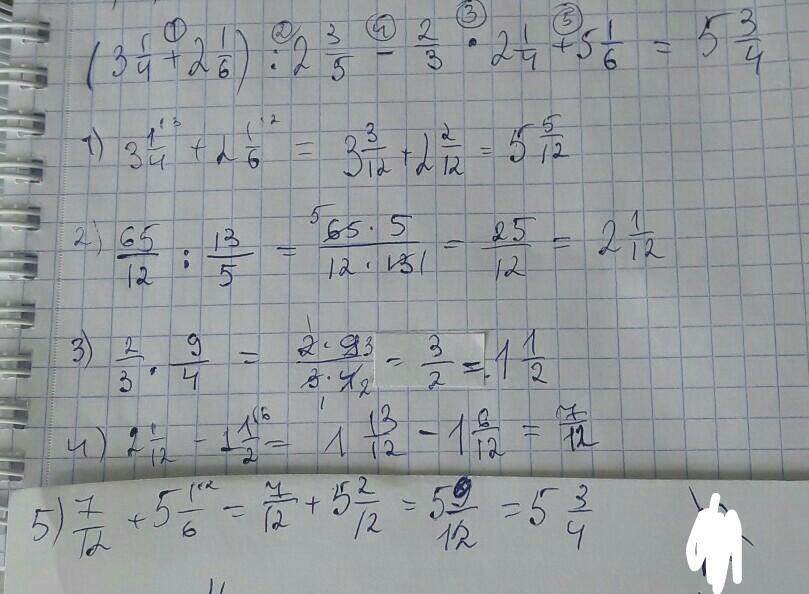 (3 1/4 + 2 1/6) : 2 3/5 - 2/3 · 2 1/4 + 5 1/6 = 5 3/4
1) 3 1/4 + 2 1/6 = 3 3/12 + 2 2/12 = 5 5/12
2) 65/12 : 13/5 = 65 · 5 / 12 · 13 = 25/12 = 2 1/12
3) 2/3 · 9/4 = 2 · 9 / 3 · 4 = 3/2 = 1 1/2
4) 2 1/12 - 1 1/2 = 1 13/12 - 1 6/12 = 7/12
5) 7/12 + 5 1/6 = 7/12 + 5 2/12 = 5 9/12 = 5 3/4